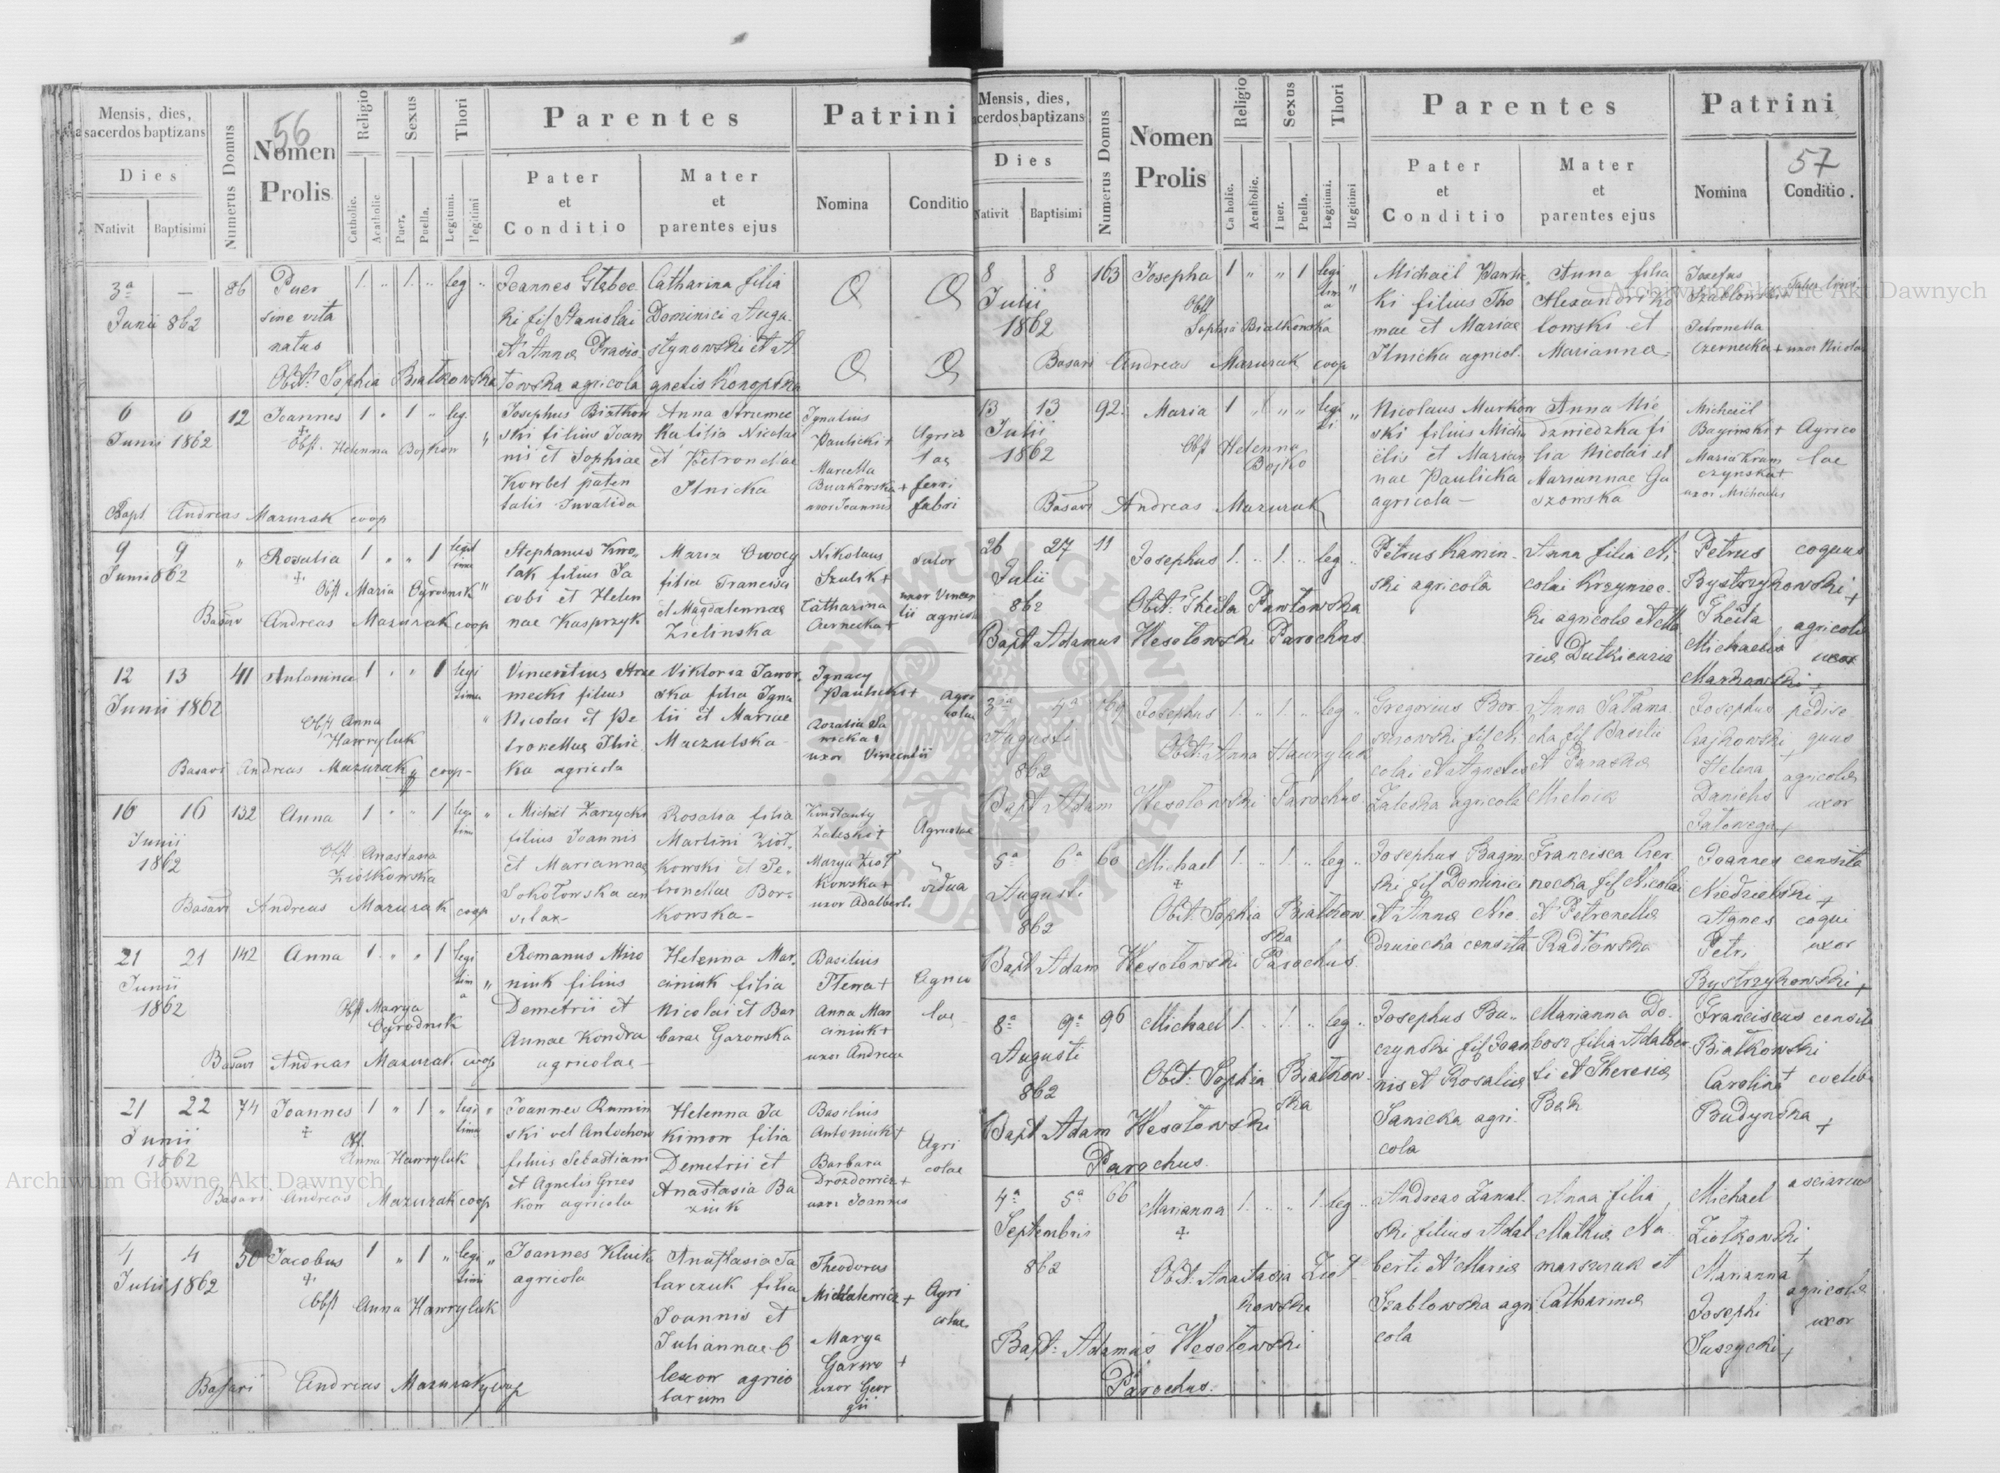 Mensis, dies,
sacerdos baptizans
Dies
Nativit
Baptisimi
Numerus Domus
56
Nomen
Prolis
Religio
Catholic.
Acatholic
Sexus
Puer.
Puella.
Thori
Legitimi.
Parentes
Pater
et
Conditio
Mater
et
parentes ejus
Patrini
Nomina
Conditio
3a — 86 Puer 1 „ 1 „ leg „
Junii 862 sine vita
natus
Obst. Sophia Białkowska
Catharina filia
Dominici Augu
stynowski et A
gnetis Konopska
6 6 12 Joannes 1 „ 1 „ leg.
Junii 1862
Obst. Helenna Bojkow
Josephus Białkow
ski filius Joan
nis et Sophiae
Korbel paten
talis Invalida
Anna Strumec
ka filia Nicolai
et Petronellae
Ilnicka
Ignatius
Pawlicki +
Marcella
Buczkowska +
uxor Joannis
Agrico
lae
ferri
fabri
Bapt. Andreas Mazurak coop
9 9 „ Rosalia 1 „ „ 1 legit
Junii 862
Obst Maria Ogrodnik
Stephanus Kwo
lak filius Ja
cobi et Helen
nae Kasprzyk
Maria Owocy
filia Francisci
et Magdalennae
Zielinska
Nikolaus
Szulsk +
Catharina
Czernecka +
sutor
uxor Vincen
tii agricola
Andreas Mazurak coop
12 13 41 Antonina 1 „ „ 1 legi
Junii 1862
Obst Anna
Hawryluk
Vincentius Stru
mecki filius
Nicolai et Pe
tronellae Ilnic
ka agricola
Viktoria Jawor
ska filia Igna
tii et Mariae
Maczulska
Ignacy
Pawlicki +
Rozalia Sa
nicka +
uxor Vincentii
Agri
colae
Basavi Andreas Mazurak coop
16 16 132 Anna 1 „ „ 1 legi
Junii
1862
Obst Anastasia
Ziołkowska
Michael Zarzycki
filius Joannis
et Mariannae
Sokołowska
Rosalia filia
Martini Zioł
kowski et Pe
tronellae Bor
kowska
Konstanty
Zaleski +
Marya Zioł
kowska +
uxor Adalberti
Agricolae
vidua
Andreas Mazurak coop
21 21 142 Anna 1 „ „ 1 legi
Junii
1862
Obst Marya
Ogrodnik
Romanus Miro
niuk filius
Demetrii et
Annae Kondra
agricolae
Helenna Mar
ciniuk filia
Nicolai et Bar
barae Gazowska
Basilius
Anna Mar
ciniuk +
uxor Andreae
Agrico
lae
Andreas Mazurak coop
21 22 74 Joannes 1 „ 1 „ legi
Junii
1862
Obst
Anna Hawryluk
Joannes Rumin
ski vel Antochow
filius Sebastiani
et Agnetis Grzes
kow agricola
Helenna Ja
kimow filia
Demetrii et
Anastasia Ba
ziuk
Basilius
Antoniuk +
Barbara
Drozdowicz +
uxor Joannis
Agri
colae
Basavi Andreas Mazurak coop
4 4 50 Jacobus 1 „ 1 „ legi
Julii 1862
Obst Anna Hawryluk
Joannes Kluik
agricola
Anastasia Ta
larczuk filia
Joannis et
Juliannae O
lexow agrico
larum
Theodorus
Michalewicz +
Marya
Garwo +
uxor Geor
gii
Agri
colae
Andreas Mazurak coop
Mensis, dies,
sacerdos baptizans
Dies
Nativit
Baptisimi
Numerus Domus
Nomen
Prolis
Religio
Catholic.
Acatholic.
Sexus
Puer.
Puella.
Thori
Legitimi.
Illegitimi
Parentes
Pater
et
Conditio
Mater
et
parentes ejus
Patrini
57
Nomina
Conditio.
8 8 163 Josepha 1 „ „ 1 legi
Julii
1862
Obst
Sophia Białkowska
ki filius Tho
mae et Mariae
Ilnicka agricol.
Anna filia
Alexandri Ko
lowski et
Marianna
Josefus
Szablowski +
Petronella
Czernecka + uxor Nicolai
Basavi Andreas Mazurak coop
13 13 92. Maria 1 „ „ legi
Julii
1862
Obst Helenna
Bojko
Nicolaus Markow
ski filius Micha
ëlis et Marian
nae Pawlicka
agricola —
Anna Nie
dzwiedzka fi
lia Nicolai et
Mariannae Ga
szowska
Michaël
Baginski +
Maria Kram
czynska +
uxor Michaelis
Agrico
lae
Basavi Andreas Mazurak
26 27 11 Josephus 1. „ 1. „ leg „
Julii
862
Obst. Thecla Pawłowska
Petrus Kamin-
ski agricola
Anna filia Ni
colai Krzyniec
ki agricolae et Ma
riae Dutkiewicz
Petrus
Bystrzykowski +
Thecla
Michaelis
Markowski +
coquus
agricolae
uxor
Bapt Adamus Wesołowski Parochus
3a 4a 169 Josephus 1. „ 1. „ leg „
Augusti
862
Obst. Anna Hawryluk
Gregorius Bor
sukowski fil Ni
colai et Agnetis
Zaleska agricola
Anna Sałama
cka fil Basilii
et Paraskae
Mielnik
Josephus
Gajkowski +
Helena
Danielis
pedise
quus
agricolae
uxor
Bapt Adam Wesołowski Parochus
5a 6a 60 Michael 1. „ 1. „ leg „
Augusti
862
Obst. Sophia Białkow
ska
Josephus Bagin
ski fil Dominici
et Annae Nie
dzwiecka censita
Francisca Czer
necka fil Nicolai
et Petronellae
Radłowska
Joannes
Niedzielski +
Agnes
Petri
Bystrzykowski +
censita
coqui
uxor
Bapt Adam Wesołowski Parochus
8a 9a 96 Michael 1. „ 1. „ leg „
Augusti
862
Obst. Sophia Białkow
ska
Josephus Bu
czynski fil Joan
nis et Rosaliae
Sanicka agri
cola
Marianna Do
bosz filia Adalber
ti et Theresiae
Bąk
Franciscus
Białkowski
Carolina +
Budynska +
censita
coeleba
Bapt Adam Wesołowski
Parochus.
4a 5a 66 Marianna 1. „ „ 1. leg „
Septembris
862
Obst. Anastasia Zioł
kowska
Andreas Zawal
ski filius Adal
berti et Mariae
Szablowska agri
cola
Anna filia
Mathiae Na
marszuk et
Catharinae
Michael
Ziołkowski +
Marianna
Josephi
Suszycki +
asciarius
agricolae
uxor
Bapt. Adamus Wesołowski
Parochus.
Archiwum Główne Akt Dawnych
Archiwum Główne Akt Dawnych